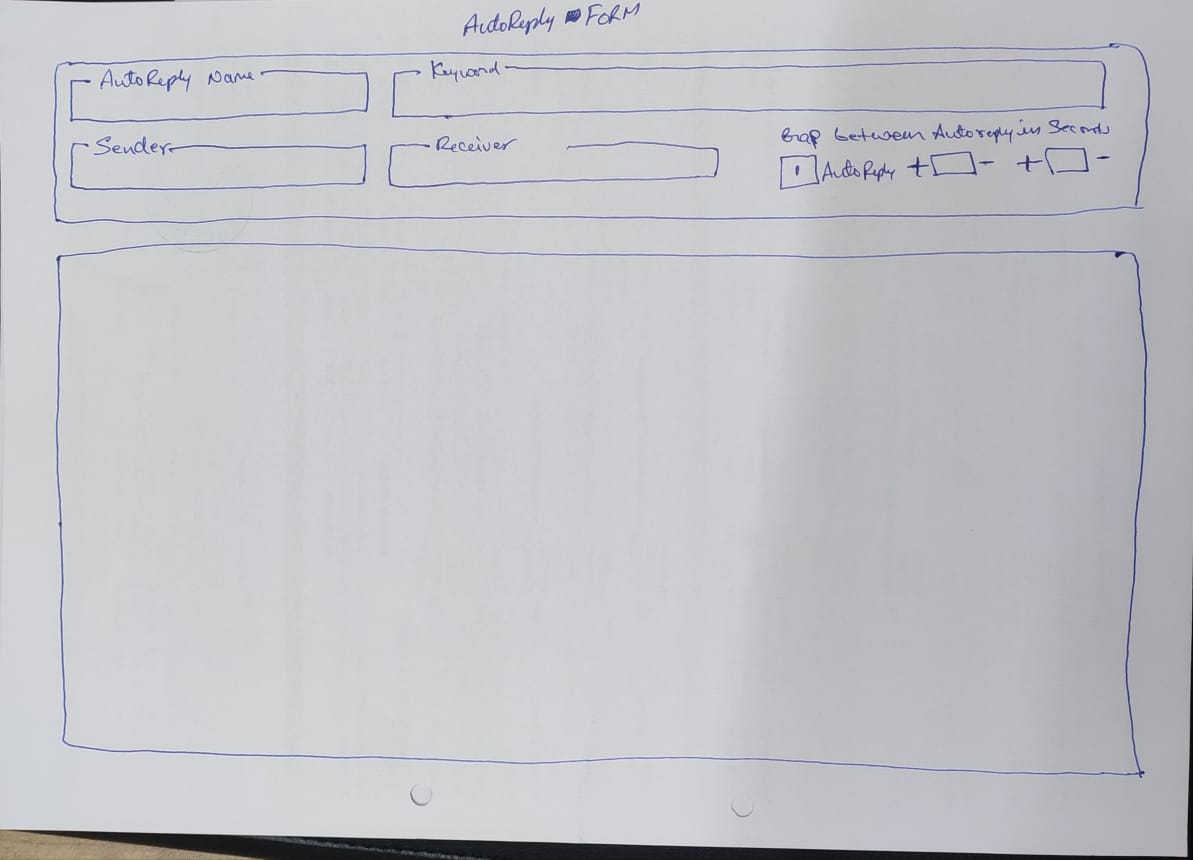 AutoReply FORM
AutoReply Name
Keyword
Sender
Receiver
Gap between Autoreply in Seconds
AutoReply + - + -